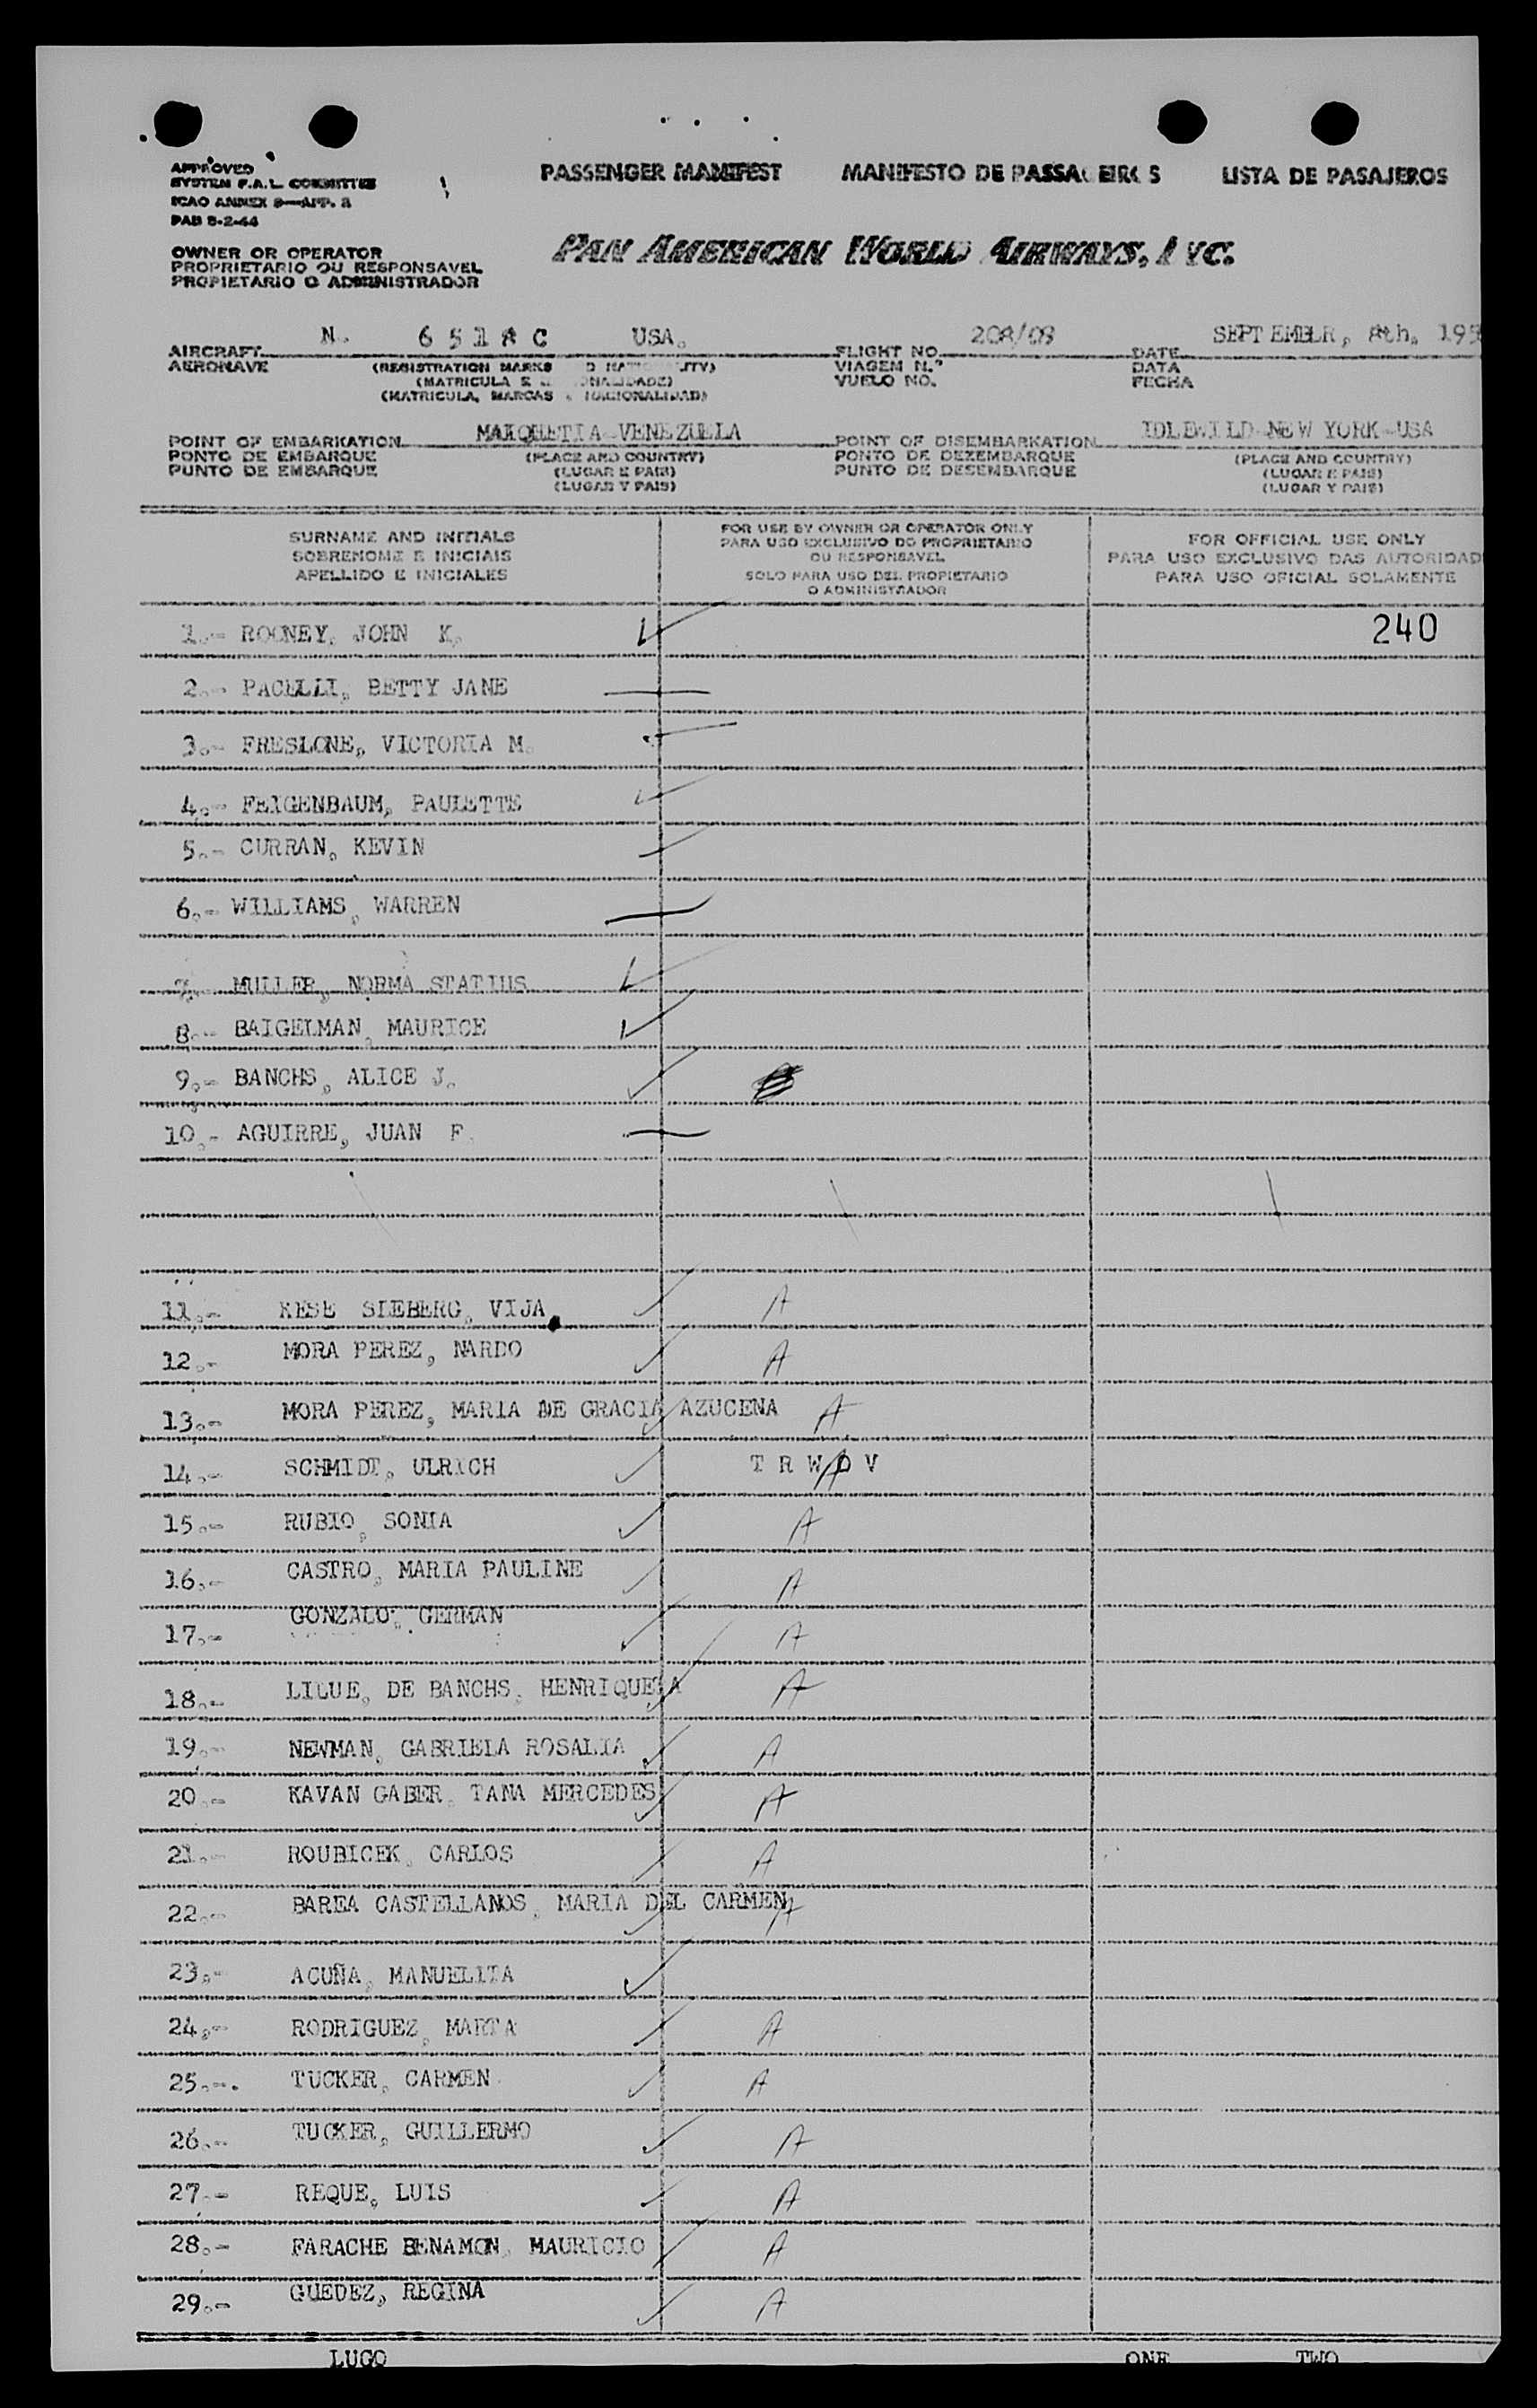 APPROVED
SYSTEM F.A.L. COMMITTEE
ICAO ANNEX 9—APP. 3
PAB 5-2-44
PASSENGER MANIFEST MANIFESTO DE PASSAGEIROS LISTA DE PASAJEROS
OWNER OR OPERATOR
PROPRIETARIO OU RESPONSAVEL
PROPIETARIO O ADMINISTRADOR
PAN AMERICAN WORLD AIRWAYS, INC.
AIRCRAFT N. 6518C USA. FLIGHT NO. 208/08 DATE SEPTEMBER, 8th. 195
AERONAVE (REGISTRATION MARKS AND NATIONALITY) VIAGEM N.º DATA
(MATRICULA E NACIONALIDADE) VUELO NO. FECHA
(MATRICULA, MARCAS Y NACIONALIDAD)
POINT OF EMBARKATION MAIQUETIA-VENEZUELA POINT OF DISEMBARKATION IDLEWILD-NEW YORK-USA
PONTO DE EMBARQUE (PLACE AND COUNTRY) PONTO DE DEZEMBARQUE (PLACE AND COUNTRY)
PUNTO DE EMBARQUE (LUGAR E PAIS) PUNTO DE DESEMBARQUE (LUGAR E PAIS)
(LUGAR Y PAIS) (LUGAR Y PAIS)
SURNAME AND INITIALS
SOBRENOME E INICIAIS
APELLIDO E INICIALES
FOR USE BY OWNER OR OPERATOR ONLY
PARA USO EXCLUSIVO DO PROPRIETARIO
OU RESPONSAVEL
SOLO PARA USO DEL PROPIETARIO
O ADMINISTRADOR
FOR OFFICIAL USE ONLY
PARA USO EXCLUSIVO DAS AUTORIDAD
PARA USO OFICIAL SOLAMENTE
1.- ROONEY, JOHN K. 240
2.- PACELLI, BETTY JANE
3.- FRESLONE, VICTORIA M.
4.- FEIGENBAUM, PAULETTE
5.- CURRAN, KEVIN
6.- WILLIAMS, WARREN
7.- MULLER, NORMA STATIUS
8.- BAIGELMAN, MAURICE
9.- BANCHS, ALICE J.
10.- AGUIRRE, JUAN F.
11.- KESE SIEBERG, VIJA A
12.- MORA PEREZ, NARDO A
13.- MORA PEREZ, MARIA DE GRACIA AZUCENA A
14.- SCHMIDT, ULRICH T R W O V A
15.- RUBIO, SONIA A
16.- CASTRO, MARIA PAULINE A
17.- GONZALO, GERMAN A
18.- LILUE, DE BANCHS, HENRIQUETA A
19.- NEWMAN, GABRIELA ROSALIA A
20.- KAVAN GABER, TANA MERCEDES A
21.- ROUBICEK, CARLOS A
22.- BAREA CASTELLANOS, MARIA DEL CARMEN A
23.- ACUÑA, MANUELITA
24.- RODRIGUEZ, MARTA A
25.-. TUCKER, CARMEN A
26.- TUCKER, GUILLERMO A
27.- REQUE, LUIS A
28.- FARACHE BENAMON, MAURICIO A
29.- GUEDEZ, REGINA A
LUGO ONE TWO